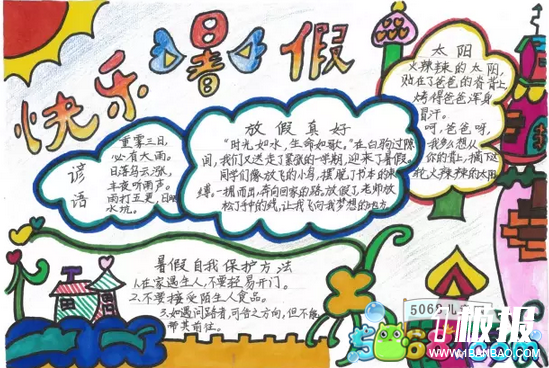 快乐暑假
谚语
重雾三日,
必有大雨。
日落乌云涨,
半夜听雨声。
雨打五更,日晒
水坑。
放假真好
"时光如水,生命如歌。"在白驹过隙
间,我们又送走了紧张的一学期,迎来了暑假。
同学们像放飞的小鸟,摆脱了书本的束
缚,一拥而出,奔向回家的路,放假了,老师放
松了手中的线,让我飞向我梦想的地方。
太阳
火辣辣的太阳,
贴在了爸爸的脊背上
烤得爸爸浑身
冒汗。
呀,爸爸呀,
我多么想从
你的背上,摘下这
轮火辣辣的太阳
暑假自我保护方法
1.在家遇生人,不要轻易开门。
2.不要接受陌生人食品。
3.如遇问路者,可告之方向,但不能
带其前往。
5068儿
1板报
WWW.1BANBAO.COM